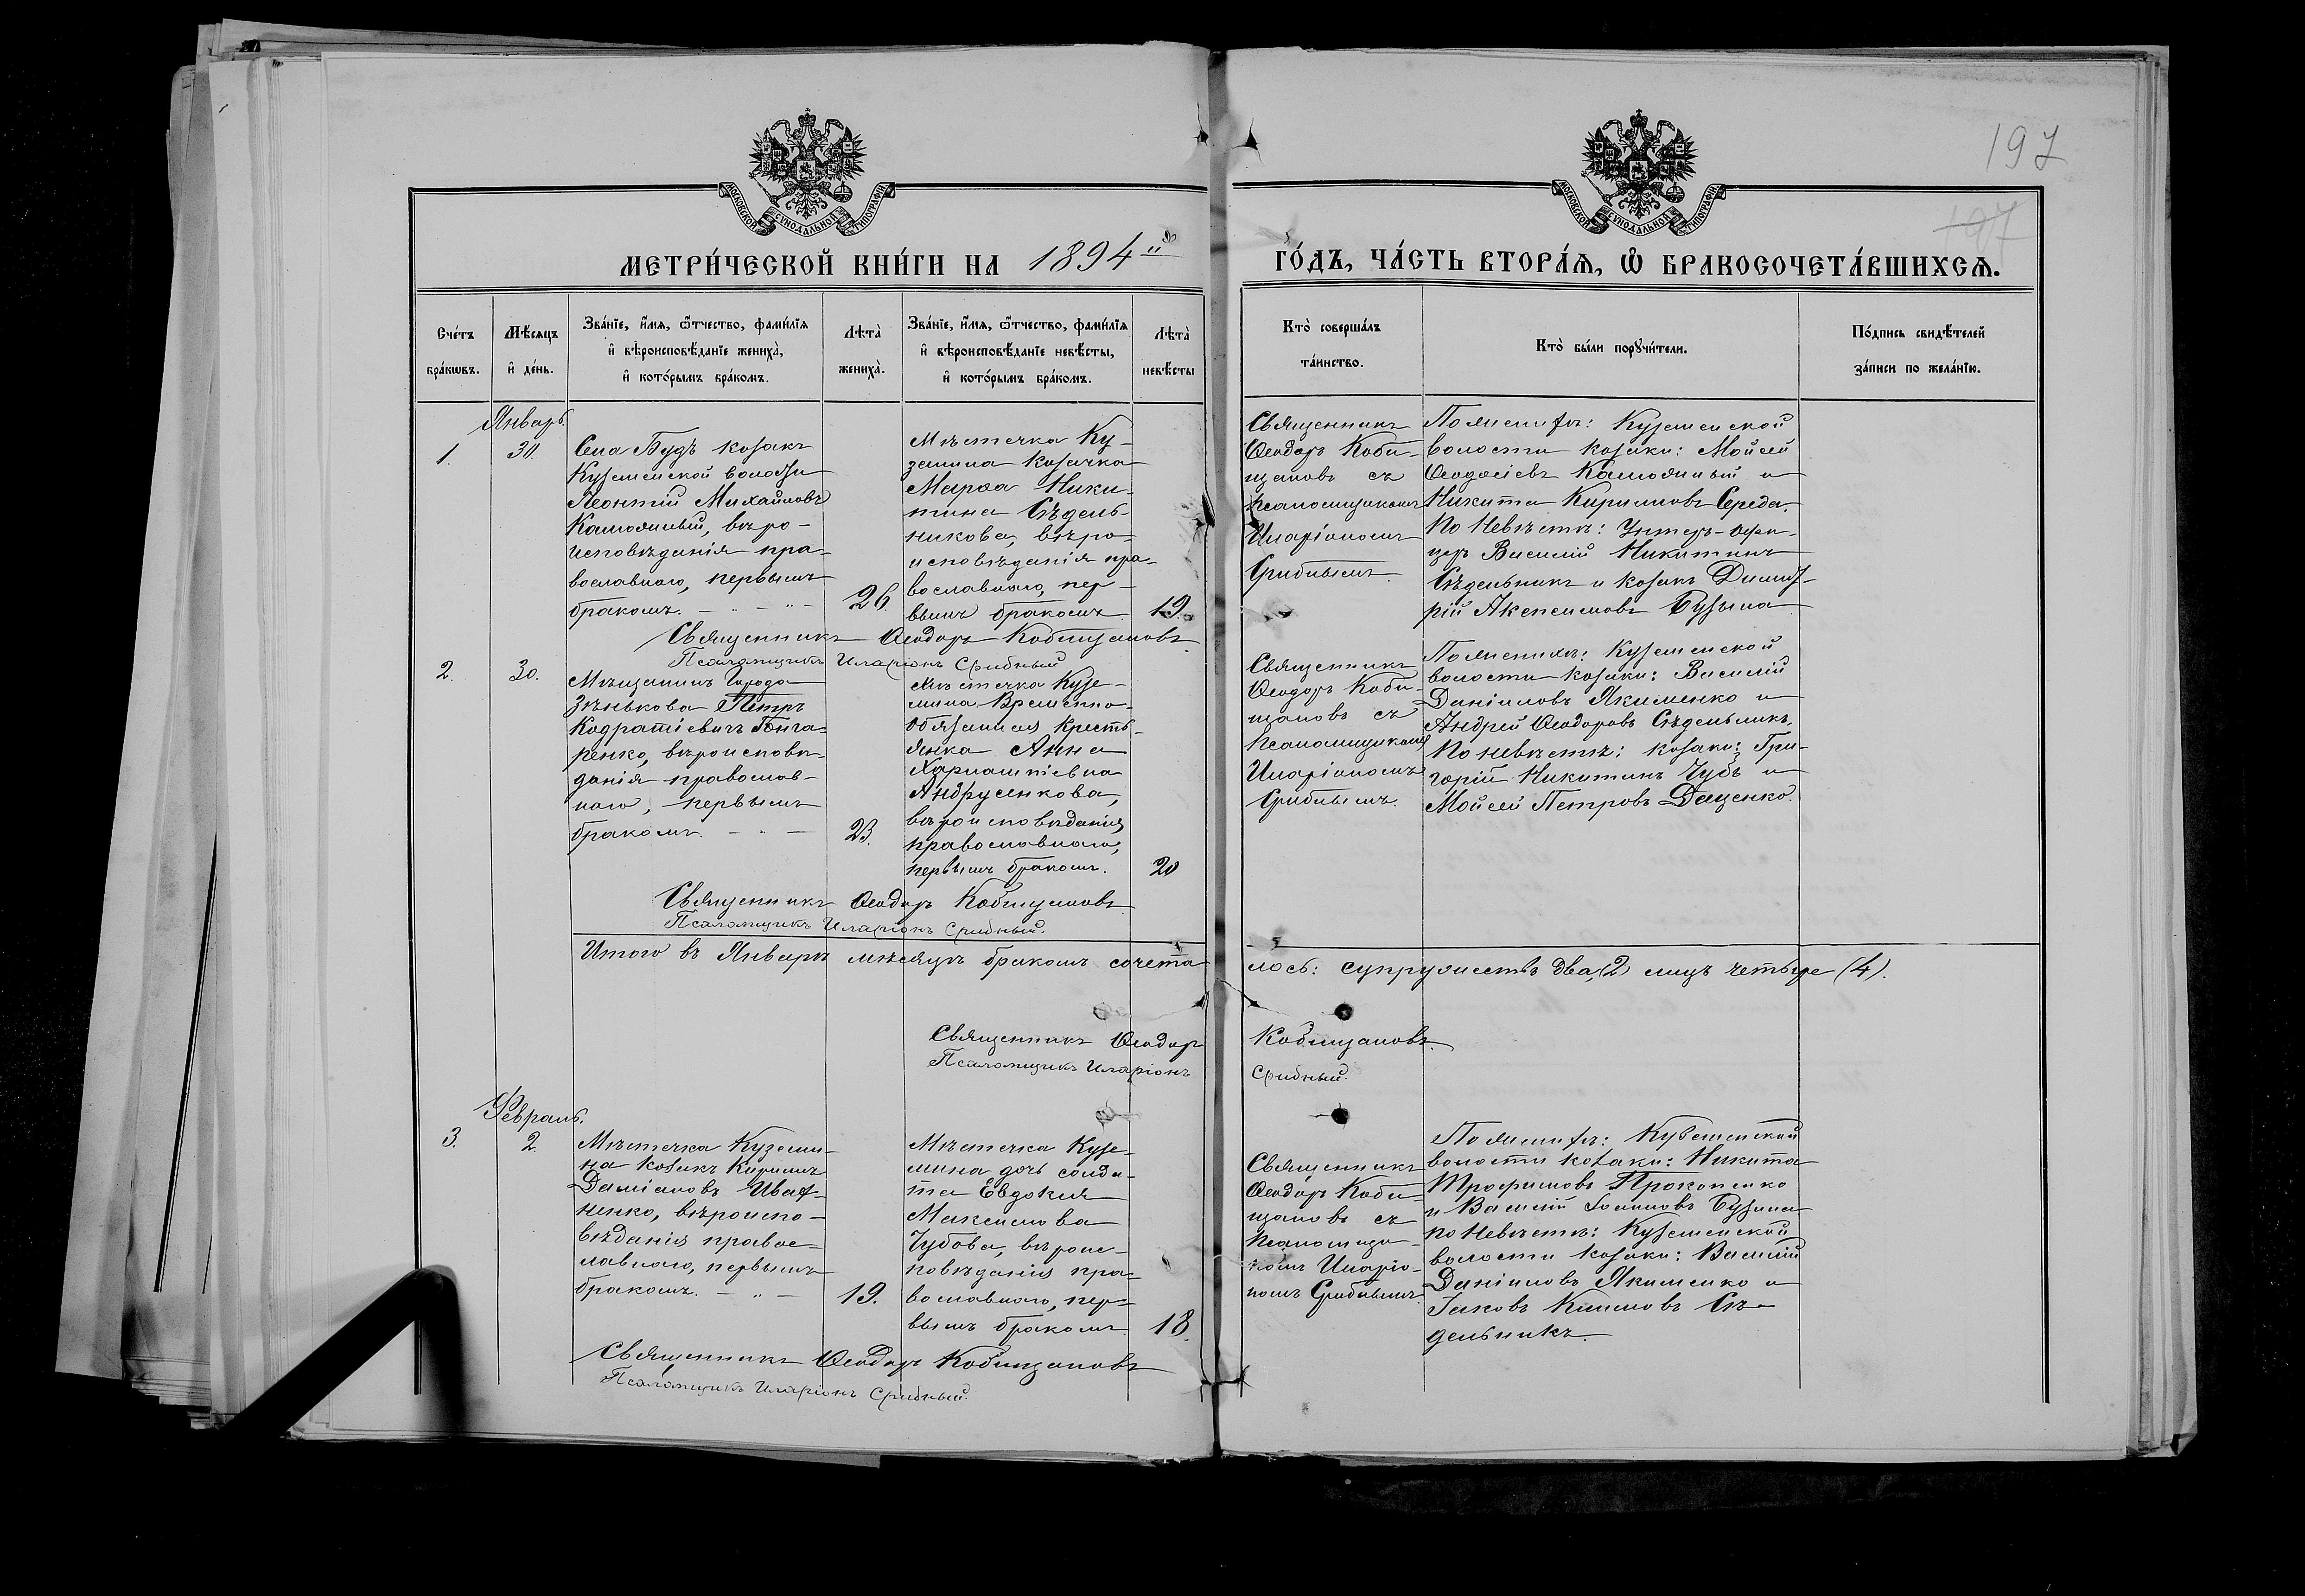 197
197
МОСКОВСКОЙ СѴНОДАЛЬНОЙ ТИПОГРАФІИ
МОСКОВСКОЙ СѴНОДАЛЬНОЙ ТИПОГРАФІИ
МЕТРИ́ЧЕСКОЙ КНИ́ГИ НА 1894й
ГО́ДЪ, ЧА́СТЬ ВТОРА́Ѧ, Ѽ БРАКОСОЧЕТА́ВШИХСѦ.
Сче́тъ бра́кѡвъ.
Мѣ́сяцъ и де́нь.
Зва́нїе, и́мѧ, ѿтчество, фами́лїѧ
и вѣроисповѣ́данїе жениха̀,
и кото́рымъ бра́комъ.
Лѣта̀ жениха̀.
Зва́нїе, и́мѧ, ѿтчество, фами́лїѧ
и вѣроисповѣ́данїе невѣ́сты,
и кото́рымъ бра́комъ.
Лѣта̀ невѣ́сты
Кто̀ соверша́лъ
та́инство.
Кто̀ бы́ли порꙋчи́тели.
По́дпись свидѣ́телей
за́писи по жела́нїю.
Январь.
1.
30.
Села Будъ козакъ
Куземской волости
Леонтій Михайловъ
вѣро-
исповѣданія пра-
вославнаго, первымъ
бракомъ.
26.
Мѣстечка Ку-
земина козачка
Марѳа Ники-
тина Сѣдель-
никова, вѣро-
исповѣданія пра-
вославнаго, пер-
вымъ бракомъ
19.
Священникъ
Ѳеодоръ Коби-
щановъ съ
псаломщикомъ
Иларіономъ
Срибнымъ.
По женихѣ: Куземской
волости козаки: Мойсей
Ѳеодосіевъ и
Никита Кириловъ Середа.
По Невѣстѣ: Унтеръ-офи-
церъ Василій Никитинъ
Сѣдельникъ и козакъ Димит-
рій Бузына
Священникъ Ѳеодоръ Кобищановъ
Псаломщикъ Иларіонъ Срибный
2.
30.
Мѣщанинъ Города
Зѣнькова Петръ
Кодратіевичъ Гонча-
ренко, вѣроисповѣ-
данія православ-
наго, первымъ
бракомъ.
23.
Мѣстечка Кузе-
мина Временно-
Обязанная Кресть-
янка Анна
Харлампіевна
Андрусенкова,
вѣроисповѣданія
православнаго,
первымъ бракомъ.
20
Священникъ
Ѳеодоръ Коби-
щановъ съ
псаломщикомъ
Иларіономъ
Срибнымъ.
По женихѣ: Куземской
волости козаки: Василій
Даніиловъ Якименко и
Андрей Ѳеодоровъ Сѣдельникъ,
По невѣстѣ: козаки: Гри-
горій Никитинъ Чубъ и
Мойсей Петровъ Даценко.
Священникъ Ѳеодоръ Кобищановъ
Псаломщикъ Иларіонъ Срибный.
Итого въ Январѣ мѣсяцѣ бракомъ сочета
лось: супружествъ два, (2) лицъ четыре (4).
Священникъ Ѳеодоръ Кобищановъ
Псаломщикъ Иларіонъ Срибный.
Февраль.
3.
2.
Мѣстечка Куземи-
на козакъ Кирилъ
Даміановъ
вѣроиспо-
вѣданія правос-
лавнаго, первымъ
бракомъ.
19.
Мѣстечка Кузе-
мина дочь солда-
та Евдокія
Максимова
Чубова, вѣроис-
повѣданія пра-
вославнаго, пер-
вымъ бракомъ
18.
Священникъ
Ѳеодоръ Коби-
щановъ съ
псаломщи-
комъ Иларіо-
номъ Срибнымъ
По женихѣ: Куземской
волости козаки: Никита
Трофимовъ Прокопенко
и Василій Іоанновъ Бузына
по Невѣстѣ: Куземской
волости козаки: Василій
Даніиловъ Якименко и
Іаковъ Климовъ Сѣ-
дельникъ.
Священникъ Ѳеодоръ Кобищановъ
Псаломщикъ Иларіонъ Срибный.